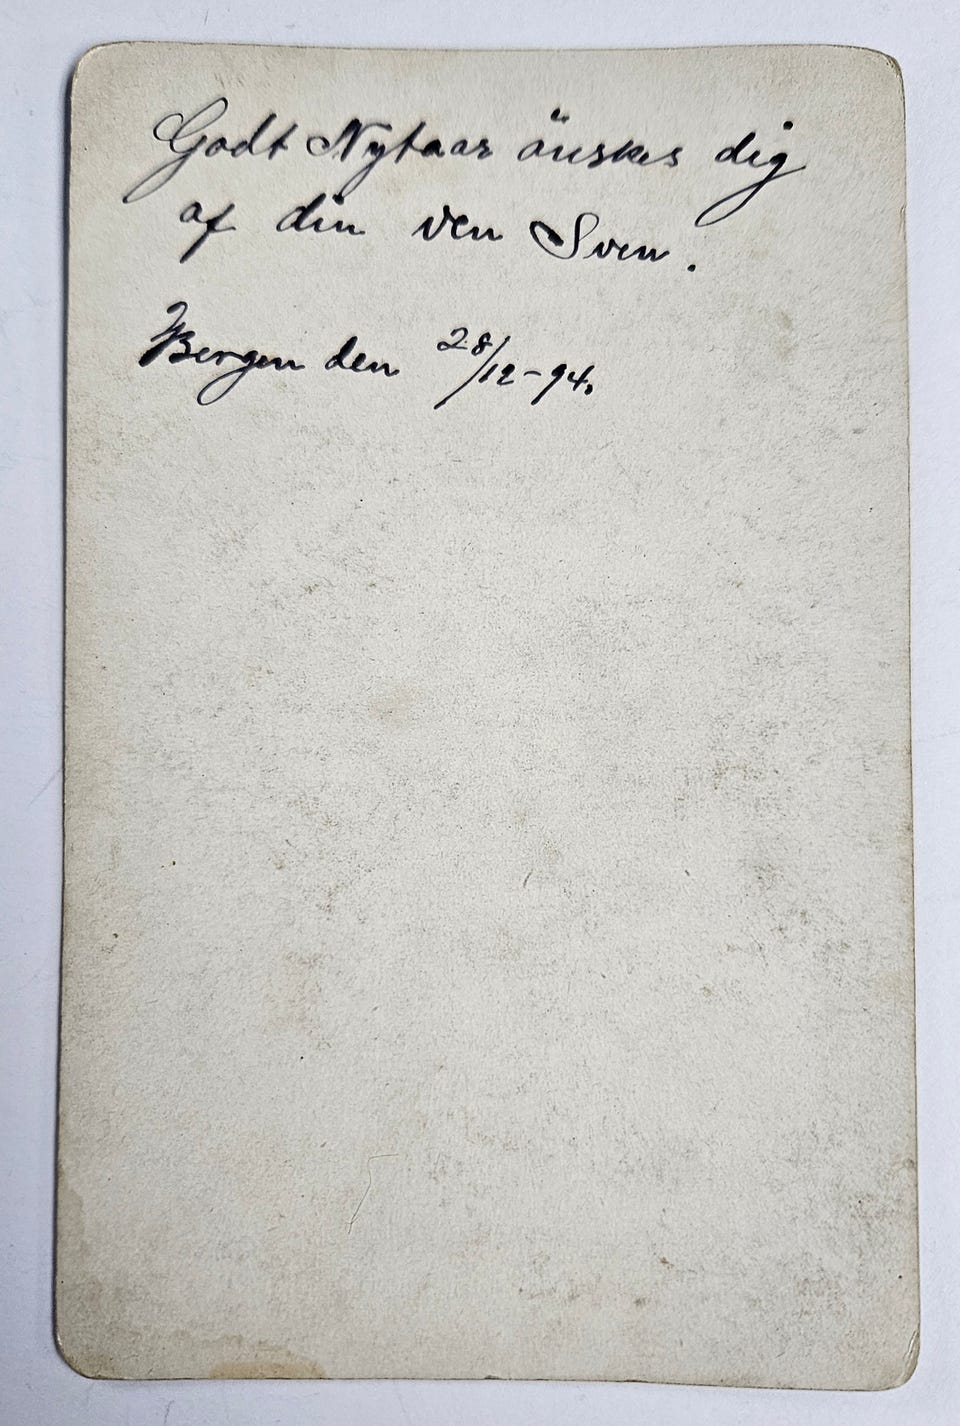 Godt Nytaar önskes dig
af din ven Sven.
Bergen den 28/12-94.